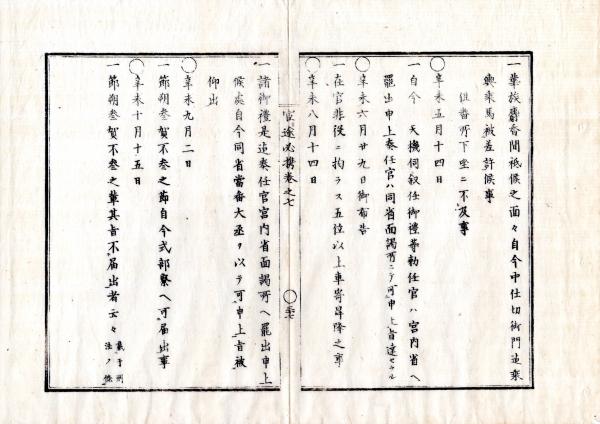 一華族麝香間祗候之面々自今中仕切御門迄乗
輿乗馬被差許候事
但番所下座ニ不及事
〇辛未五月十四日
一自今　天機伺叙任御禮等勅任官ハ宮内省へ
罷出申上奏任官ハ同省面謁所ニテ可申上旨達セラル
〇辛未六月廿九日御布告
一在官非役ニ拘ラス五位以上車寄昇降之事
〇辛未八月十四日
官途必携巻之七
一諸御禮是迄奏任官宮内省面謁所へ罷出申上
候處自今同省當番大丞ヲ以テ可申上旨被
仰出
〇辛未九月二日
一節朔参賀不参之節自今式部寮へ可届出事
〇辛未十月十五日
一節朔参賀不参之輩其旨不届出者云々 載于刑法ノ條